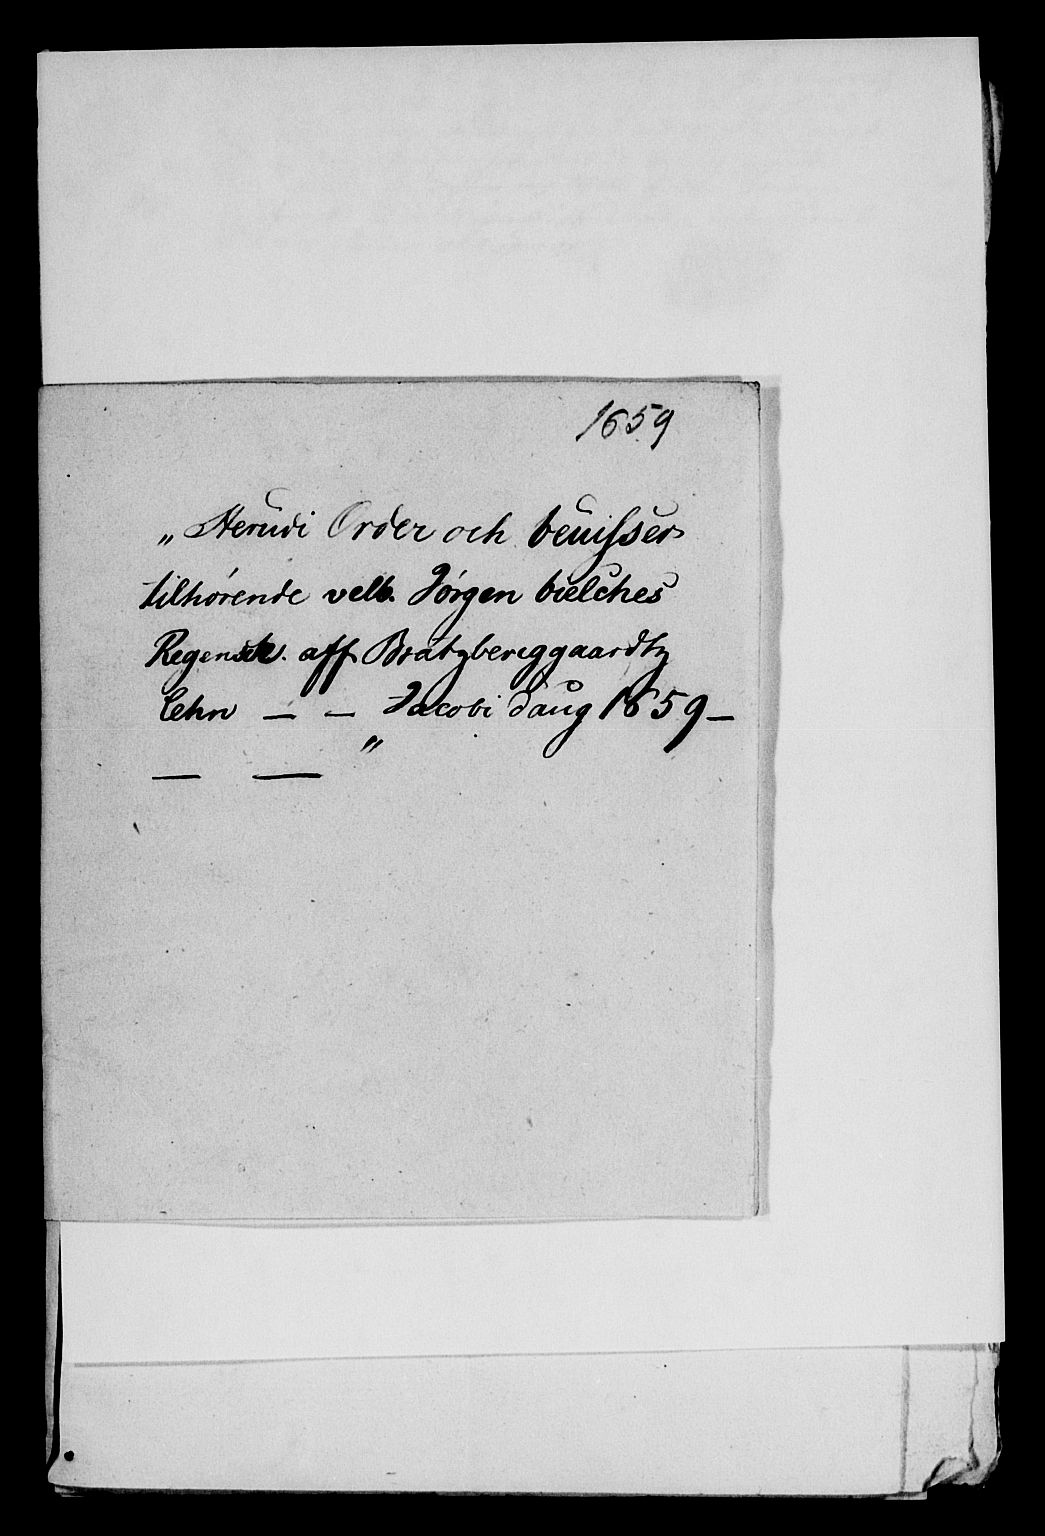 1659
„Herudi Order och beuisser
tilhørende velb. Jørgen bielches
Regensk. aff Bratzbergggaardtz
Lehn — — Jacobi daug 1659 —
— — "